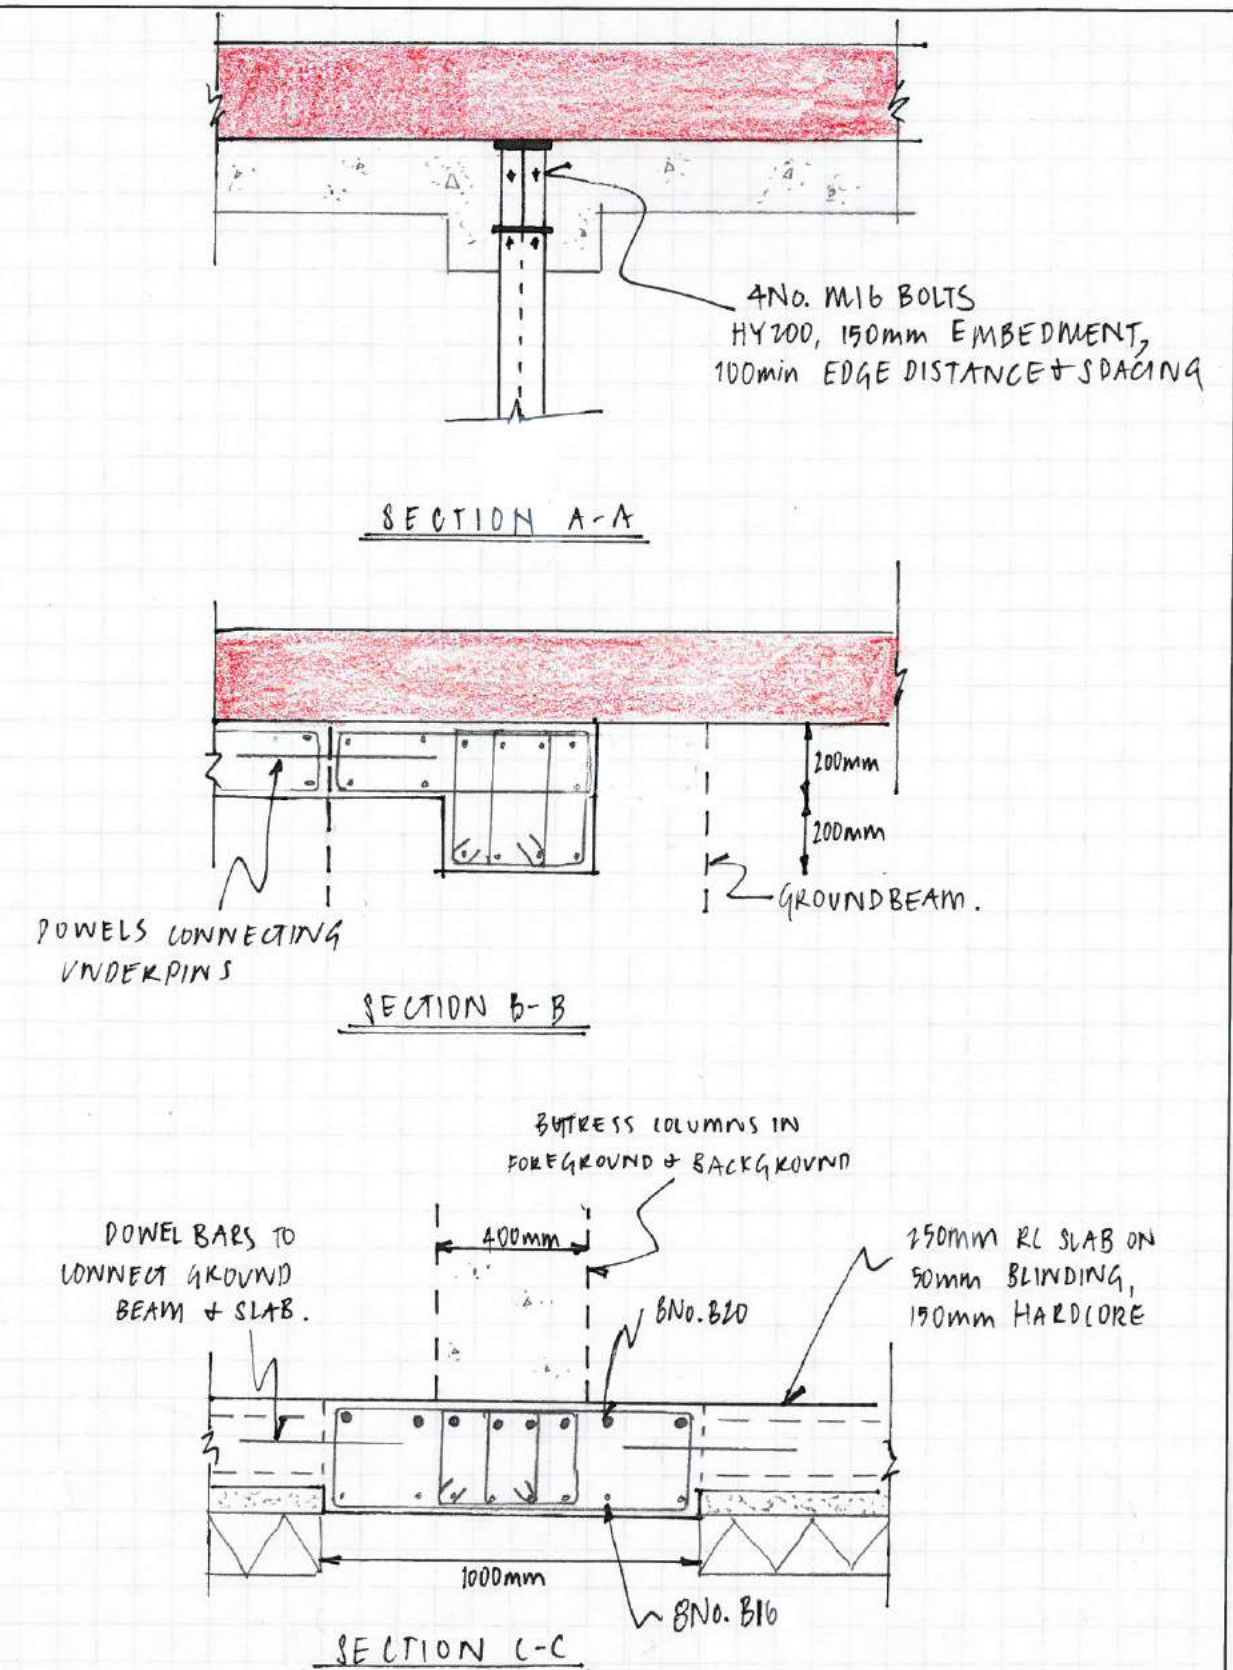 4NO. M16 BOLTS
HY200, 150mm EMBEDMENT,
100min EDGE DISTANCE & SPACING
SECTION A-A
200mm
200mm
GROUNDBEAM.
DOWELS CONNECTING
UNDERPINS
SECTION B-B
BUTTRESS COLUMNS IN
FOREGROUND & BACKGROUND
DOWEL BARS TO
CONNECT GROUND
BEAM & SLAB.
400mm
8NO. B20
250mm RC SLAB ON
50mm BLINDING,
150mm HARDCORE
1000mm
8NO. B16
SECTION C-C